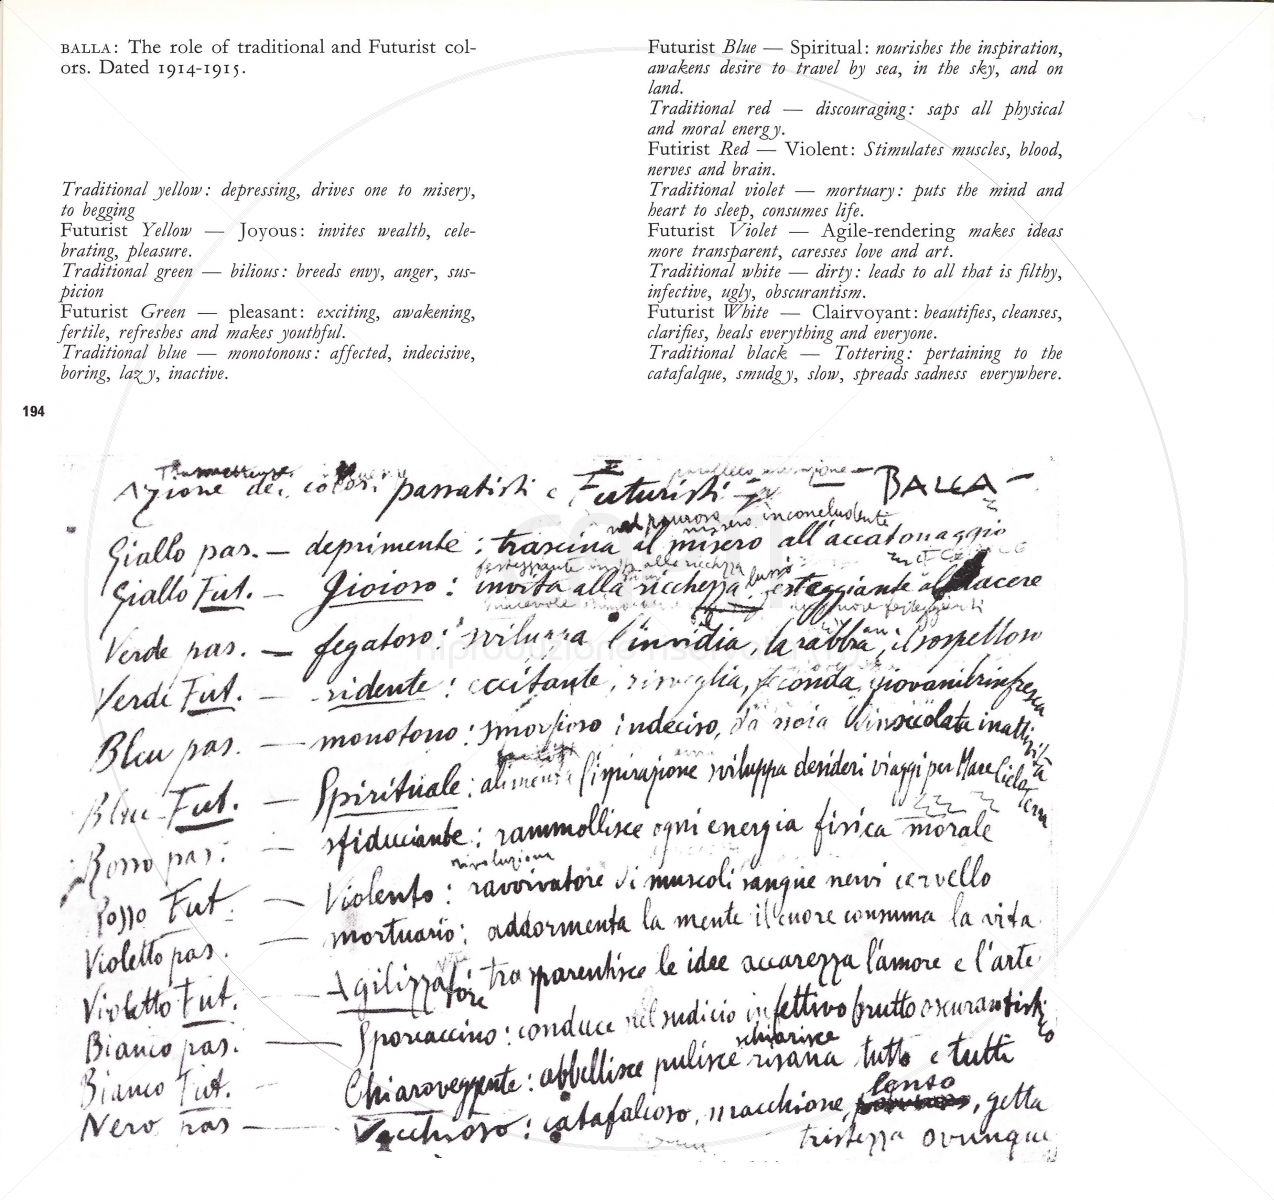 BALLA: The role of traditional and Futurist col-
ors. Dated 1914-1915.
Traditional yellow: depressing, drives one to misery,
to begging
Futurist Yellow — Joyous: invites wealth, cele-
brating, pleasure.
Traditional green — bilious: breeds envy, anger, sus-
picion
Futurist Green — pleasant: exciting, awakening,
fertile, refreshes and makes youthful.
Traditional blue — monotonous: affected, indecisive,
boring, lazy, inactive.
Futurist Blue — Spiritual: nourishes the inspiration,
awakens desire to travel by sea, in the sky, and on
land.
Traditional red — discouraging: saps all physical
and moral energy.
Futirist Red — Violent: Stimulates muscles, blood,
nerves and brain.
Traditional violet — mortuary: puts the mind and
heart to sleep, consumes life.
Futurist Violet — Agile-rendering makes ideas
more transparent, caresses love and art.
Traditional white — dirty: leads to all that is filthy,
infective, ugly, obscurantism.
Futurist White — Clairvoyant: beautifies, cleanses,
clarifies, heals everything and everyone.
Traditional black — Tottering: pertaining to the
catafalque, smudgy, slow, spreads sadness everywhere.
194
Azione dei colori passatisti e Futuristi — BALLA —
misero inconcludente
Giallo pas. — deprimente: trascina al misero all'accatonaggio
Giallo Fut. — Gioioso: invita alla ricchezza lusso festeggiante al piacere
Verde pas. — fegatoso: sviluppa l'invidia, la rabbia, il sospettoso
Verde Fut. — ridente: eccitante, risveglia, feconda, giovanil rinfresca
Bleu pas. — monotono: smorfioso indeciso, da noia inattivita
Bleu Fut. — Spirituale: alimenta l'ispirazione sviluppa desideri viaggi per Mare Cielo Terra
Rosso pas. — sfiduciante: rammollisce ogni energia fisica morale
rivoluzione
Rosso Fut. — Violento: ravvivatore di muscoli sangue nervi cervello
Violetto pas. — mortuario: addormenta la mente il cuore consuma la vita
Violetto Fut. — Agilizzatore trasparentisce le idee accarezza l'amore e l'arte
Bianco pas. — Sporcaccino: conduce nel sudicio infettivo brutto oscurantistico
schiarisce
Bianco Fut. — Chiaroveggente: abbellisce pulisce risana tutto e tutti
lenso
Nero pas — Vecchioso: catafalcoso, macchione, getta
tristezza ovunque